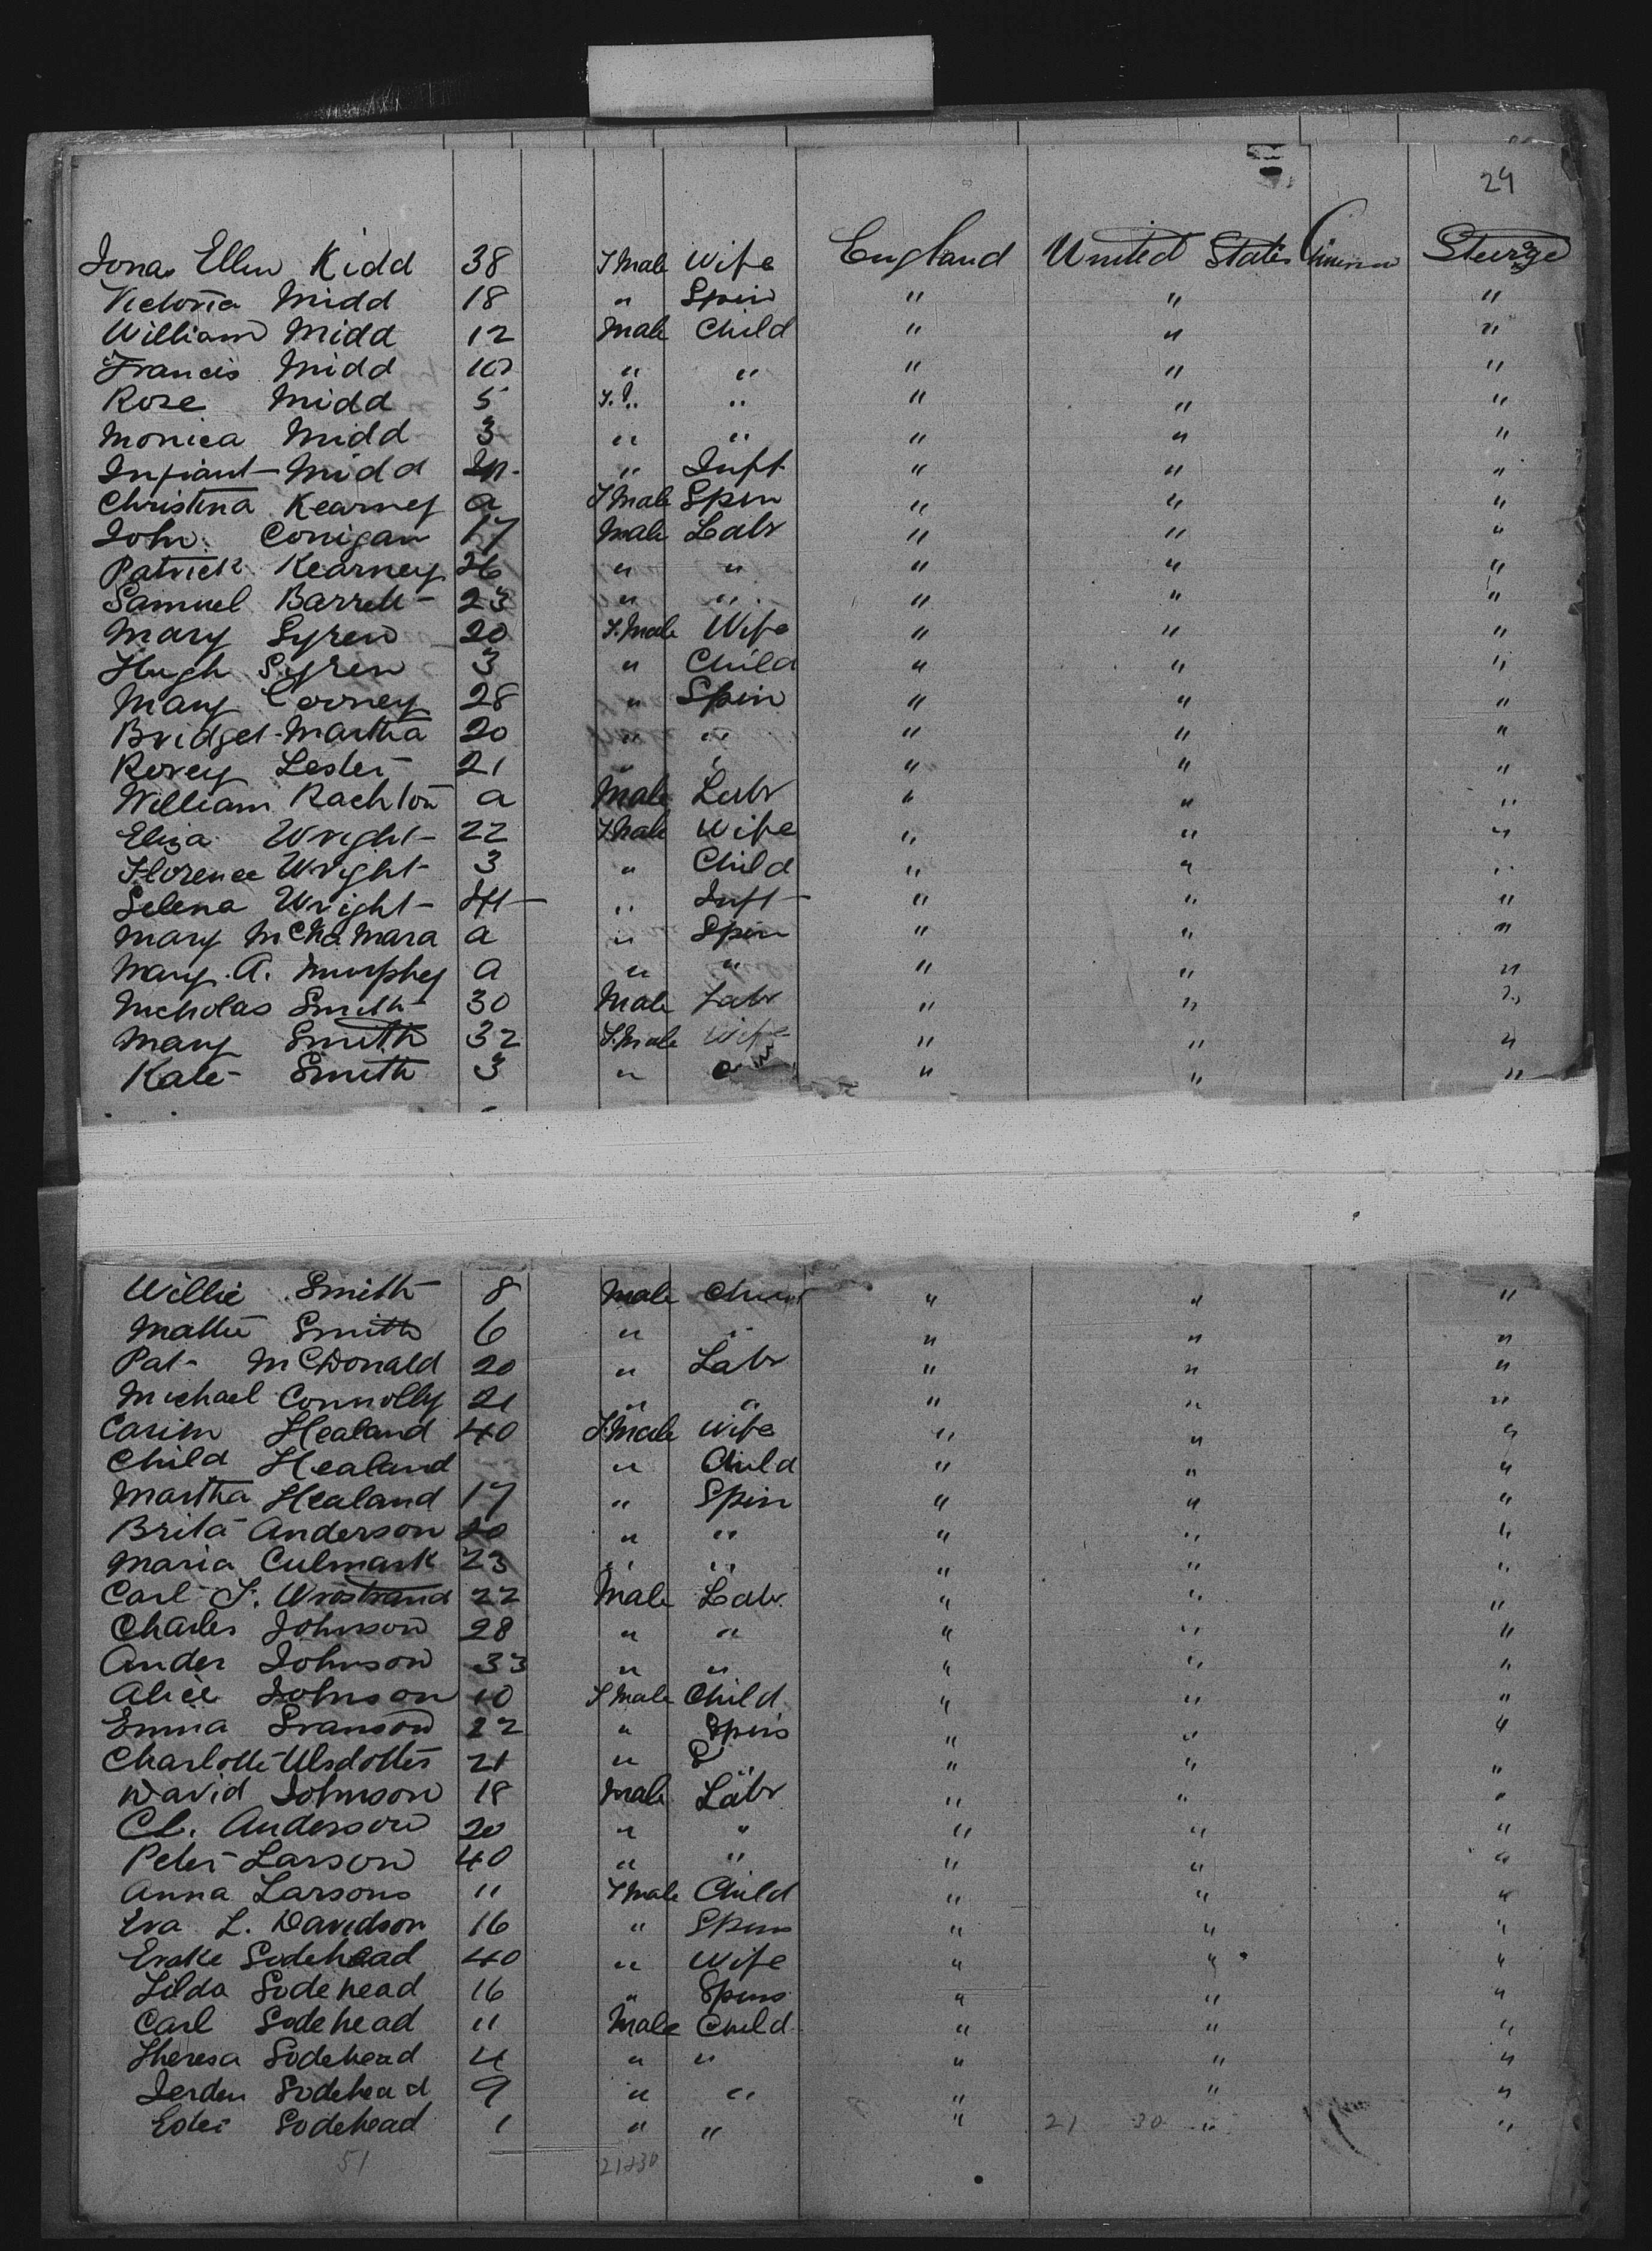 29
Jona Ellen Kidd 38 F.Male Wife England United States Steerge
Victoria Midd 18 " Spin " " "
William Midd 12 Male Child " " "
Francis Midd 10 " " " " "
Rose Midd 5 F. " " " " "
Monica Midd 3 " " " " "
Infiant Midd " Inft " " "
Christina Kearney a F Male Spin " " "
John Conigan 17 Male Labr " " "
Patrick Kearney 26 " " " " "
Samuel Barrett 23 " " " " "
Mary Syren 20 F.Male Wife " " "
Hugh Syren 3 " Child " " "
Mary Corney 28 " Spin " " "
Bridget Martha 20 " " " " "
Rovey Lester 21 " " " " "
William Rachton a Male Labr " " "
Eliza Wright 22 F.Male Wife " " "
Florence Wright 3 " Child " " "
Selena Wright " Inft " " "
Mary McNamara a " Spin " " "
Mary A. Murphey a " " " " "
Nicholas Smith 30 Male Labr " " "
Mary Smith 32 F.Male Wife " " "
Kate Smith 3 " " " "
Willie Smith 8 Male " " "
Mattie Smith 6 " " " " "
Pat McDonald 20 " Labr " " "
Michael Connolly 21 " " " " "
Carin Healand 40 F.Male Wife " " "
Child Healand " Child " " "
Martha Healand 17 " Spin " " "
Brita Anderson 20 " " " " "
Maria Culmark 23 " " " " "
Carl F. 22 Male Labr. " " "
Charles Johnson 28 " " " " "
Ander Johnson 33 " " " " "
Alice Johnson 10 F Male Child " " "
Emma Svanson 22 " Spins " " "
Charlotte Ulsdotter 21 " " " " "
David Johnson 18 Male Labr " " "
Cl. Anderson 20 " " " " "
Peter Larson 40 " " " " "
Anna Larsons 11 F Male Child " " "
Eva L. Davidson 16 " Spins " " "
Erake Sodehead 40 " Wife " " "
Tilda Sodehead 16 " Spins " " "
Carl Sodehead 11 Male Child " " "
Theresa Sodehead 4 " " " " "
Jerden Sodehead 9 " " " " "
Eder Sodehead 1 " " " 21 30 " "
51 21+30